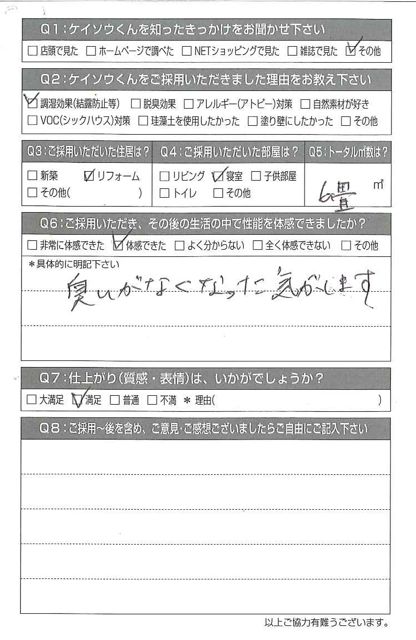 Q1：ケイソウくんを知ったきっかけをお聞かせ下さい
□店頭で見た □ホームページで調べた □NETショッピングで見た □雑誌で見た ☑その他
Q2：ケイソウくんをご採用いただきました理由をお教え下さい
☑調湿効果(結露防止等) □脱臭効果 □アレルギー(アトピー)対策 □自然素材が好き
□VOC(シックハウス)対策 □珪藻土を使用したかった □塗り壁にしたかった □その他
Q3：ご採用いただいた住居は？ Q4：ご採用いただいた部屋は？ Q5：トータル㎡数は？
□新築 ☑リフォーム □リビング ☑寝室 □子供部屋 6畳 ㎡
□その他( ) □トイレ □その他
Q6：ご採用いただき、その後の生活の中で性能を体感できましたか？
□非常に体感できた ☑体感できた □よく分からない □全く体感できない □その他
＊具体的に明記下さい
臭いがなくなった気がします
Q7：仕上がり(質感・表情)は、いかがでしょうか？
□大満足 ☑満足 □普通 □不満 ＊理由( )
Q8：ご採用〜後を含め、ご意見・ご感想ございましたらご自由にご記入下さい
以上ご協力有難うございます。